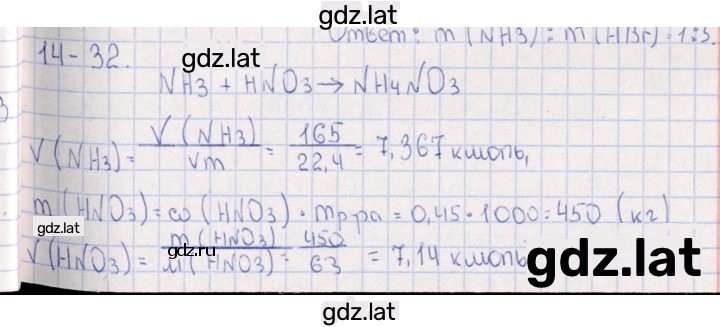 gdz.lat
Ответ: m (NH3) : m (HBr) = 1:3.
14-32.
gdz.lat
NH3 + HNO3 → NH4NO3
gdz.lat
V (NH3) = V (NH3) / Vm = 165 / 22,4 = 7,367 кмоль,
m (HNO3) = ω (HNO3) · mр-ра = 0,45 · 1000 = 450 (кг)
gdz.lat
V (HNO3) = m (HNO3) / M (HNO3) = 450 / 63 = 7,14 кмоль
gdz.ru
gdz.lat
gdz.lat